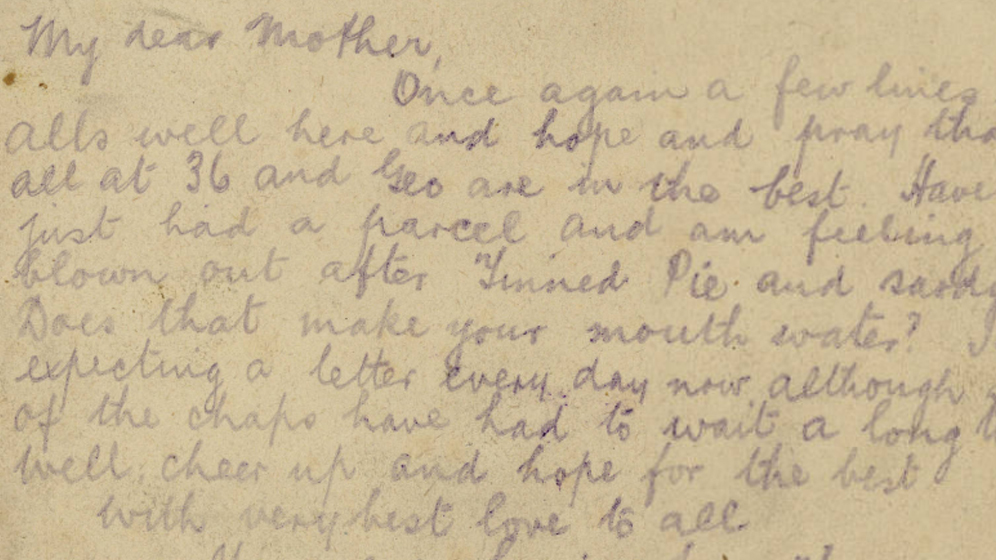 My dear Mother,
Once again a few lines
Alls well here and hope and pray tha
all at 36 and Geo are in the best. Have
just had a parcel and am feeling
blown out after Tinned Pie and sardg
Does that make your mouth water? I
expecting a letter every day now although
of the chaps have had to wait a long t
Well cheer up and hope for the best
With very best love to all